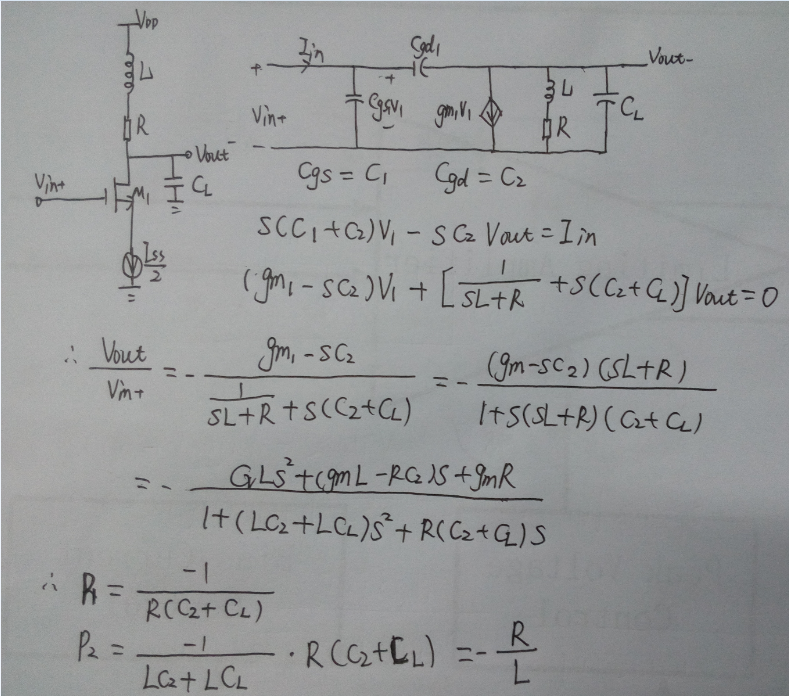 VDD
L
R
Vout-
CL
Vin+
M1
Iss/2
Iin
Cgd1
+
+
Vin+
Cgs1
V1
-
gm1V1
L
R
CL
Vout-
-
Cgs = C1 Cgd = C2
S(C1+C2)V1 - SC2 Vout = Iin
(gm1 - SC2)V1 + [1/(SL+R) + S(C2+CL)] Vout = 0
∴ Vout/Vin+ = - (gm1 - SC2)/(1/(SL+R) + S(C2+CL)) = - (gm-SC2)(SL+R)/(1+S(SL+R)(C2+CL))
= - (C2LS²+(gmL-RC2)S+gmR)/(1+(LC2+LCL)S²+R(C2+CL)S)
∴ P1 = -1/(R(C2+CL))
P2 = -1/(LC2+LCL) · R(C2+CL) = - R/L